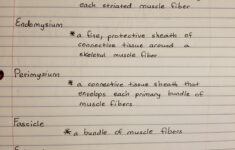 each striated muscle fiber
Endomysium
* a fine, protective sheath of
connective tissue around a
skeletal muscle fiber
Perimysium
* a connective tissue sheath that
envelops each primary bundle of
muscle fibers
Fascicle
* a bundle of muscle fibers